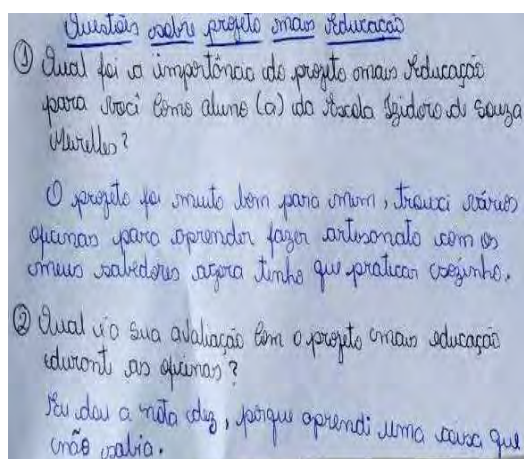 Questões sobre projeto mais Educação
① Qual foi a importância do projeto mais Educação
para você como aluno (a) da Escola Izidoro de Souza
Meirelles?
O projeto foi muito bom para mim, trouxi vários
oficinas para aprender fazer artesonato com os
meus sabedores agora tenho que praticar sozinho.
② Qual é a sua avaliação com o projeto mais educação
durant as oficinas?
Eu dou a nota dez, porque aprendi uma coisa que
não sabia.